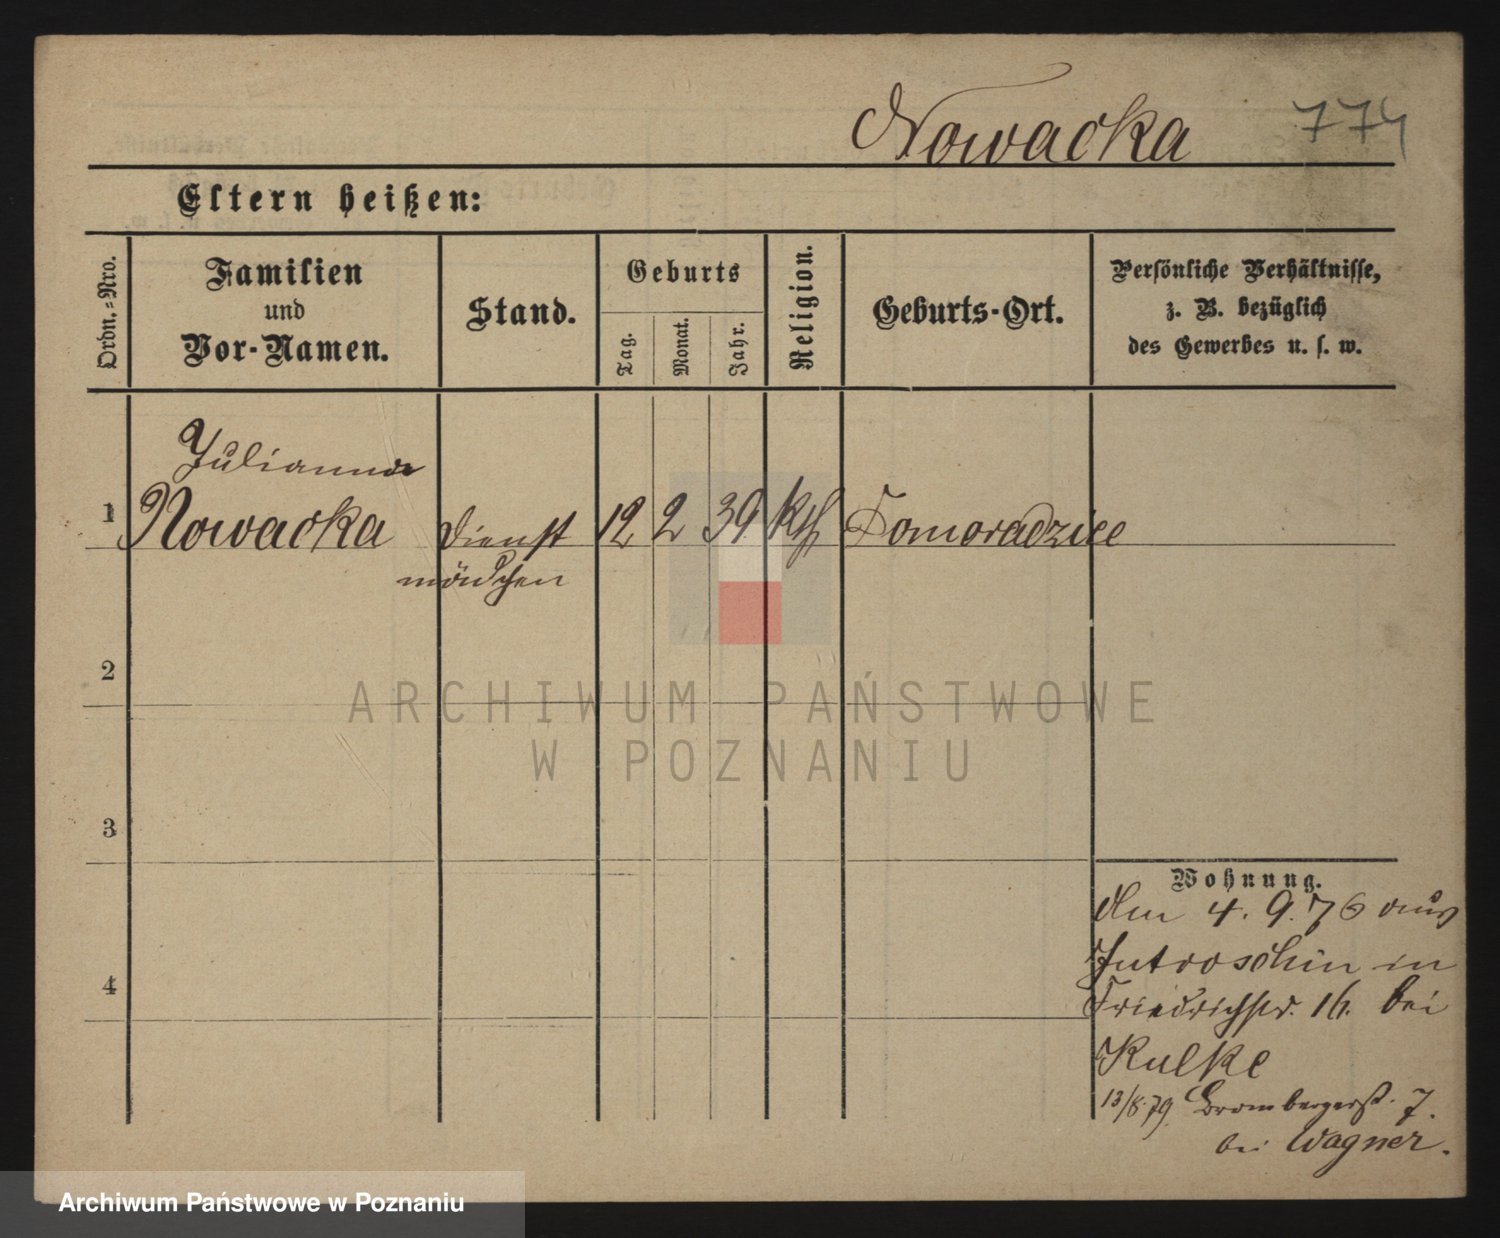 Nowacka 774
Eltern heißen:
Ordn.-Nro.
Familien
und
Vor-Namen.
Stand.
Geburts
Tag.
Monat.
Jahr.
Religion.
Geburts-Ort.
Persönliche Verhältnisse,
z. B. bezüglich
des Gewerbes u. s. w.
Julianna
1 Nowacka Dienst 12 2 39 kth Domoradzice
mädchen
2
ARCHIWUM PAŃSTWOWE
W POZNANIU
3
4
Wohnung.
Am 4. 9. 76 aus
Jutroschin in
Friedrichstr. 16. bei
Kulke
13/8.79. Brombergerst. 7.
bei Wagner.
Archiwum Państwowe w Poznaniu